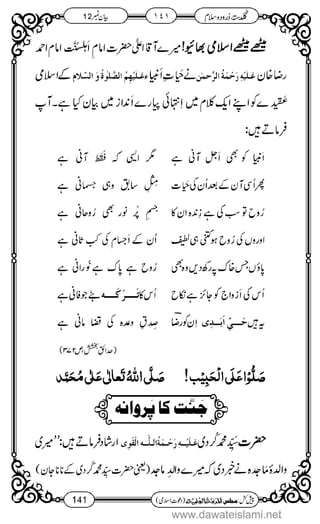 گلدستۂ درود و سلام ۱٤۱ بیان نمبر 12
میٹھے میٹھے اسلامی بھائیو! میرے آقا اعلیٰ حضرت امامِ اہلسنّت امام احمد
رضا خان عَلَیْہِ رَحْمَۃُ الرَّحْمٰن نے حیاتِ انبیا عَلَیْہِمُ الصَّلٰوۃُ وَالسَّلَام کے اسلامی
عقیدے کو اپنے ایک کلام میں انتہائی پیارے انداز میں بیان کیا ہے۔ آپ
فرماتے ہیں:
انبیا کو بھی اجل آنی ہے مگر ایسی کہ فقط آنی ہے
پھر اُسی آن کے بعد اُن کی حیات مثلِ سابق وہی جسمانی ہے
روح تو سب کی ہے زندہ ان کا جسمِ پُر نور بھی روحانی ہے
اوروں کی روح ہو کتنی ہی لطیف اُن کے اجسام کی کب ثانی ہے
پاؤں جس خاک پہ رکھ دیں وہ بھی روح ہے پاک ہے نورانی ہے
اُس کی ازواج کو جائز ہے نکاح اُس کا ترکہ بٹے جو فانی ہے
یہ ہیں حَیِّ اَبَدی ان کو رضا صدقِ وعدہ کی قضا مانی ہے
(حدائقِ بخشش، ص ۳۷۲)
صَلُّوْا عَلَی الْحَبِیْب! صَلَّی اللّٰہُ تَعَالٰی عَلٰی مُحَمَّد
جنّت کا پروانہ
حضرت سیّد محمد کُردی عَلَیْہِ رَحْمَۃُ اللّٰہِ الْقَوِی ارشاد فرماتے ہیں: ’’میری
والدۂ ماجدہ نے خبر دی کہ میرے والدِ ماجد (یعنی حضرت سیّد محمد کُردی کے نانا جان)
141
www.dawateislami.net